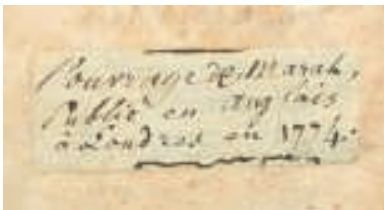 l'ouvrage de Marat,
Publié en anglais
à Londres en 1774.